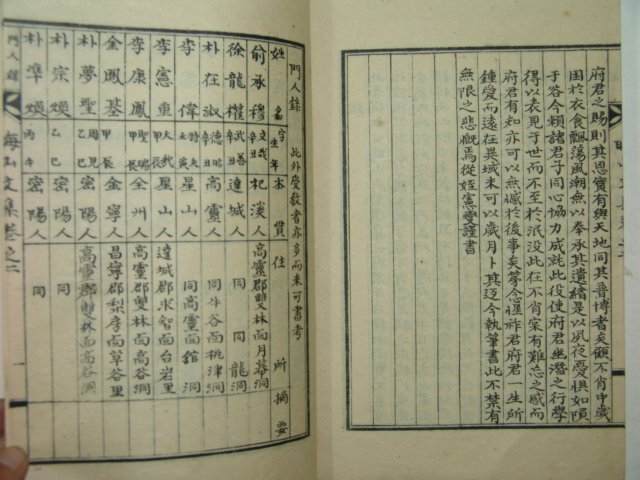 府君之賜則其恩實有與天地同其普博者矣顧不肖中歲
困於衣食飄蕩風潮無以奉承其遺緒是以夙夜憂惧如隕
于谷今賴諸君子同心協力成就此役使府君坐潛之行學
得以表見于世而不至於泯没此在不肖寀有難忘之感而
府君有知亦可以無憾於後事矣篆念惺祚君府君一生所
鍾愛而遠在異域未可以歲月卜其返今執筆書此不禁有
無限之悲慨焉從姪憲燮謹書
門人錄 此外受教者亦多而未可書考
姓名 字生年 本貫 住所 摘要
俞承穆 文哉 辛丑 杞溪人 高靈郡雙林面月幕洞
徐龍權 武善 辛丑 達城人 同 同 龍洞
朴在淑 德 辛丑 高靈人 同牛谷面桃津洞
李偉 特夫 壬寅 星山人 同高靈面舘洞
李憲重 甲辰 星山人 達城郡求智面台岩里
李康鳳 聖瑞 甲辰 全州人 高靈郡雙林面高谷洞
金鳳基 甲辰 金寧人 昌寧郡梨房面草谷里
朴夢聖 周見 乙巳 密陽人 高靈郡雙林面高谷洞
朴宗煥 乙巳 密陽人 同
朴準煥 丙午 密陽人 同
門人錄 海山文集卷之二 一